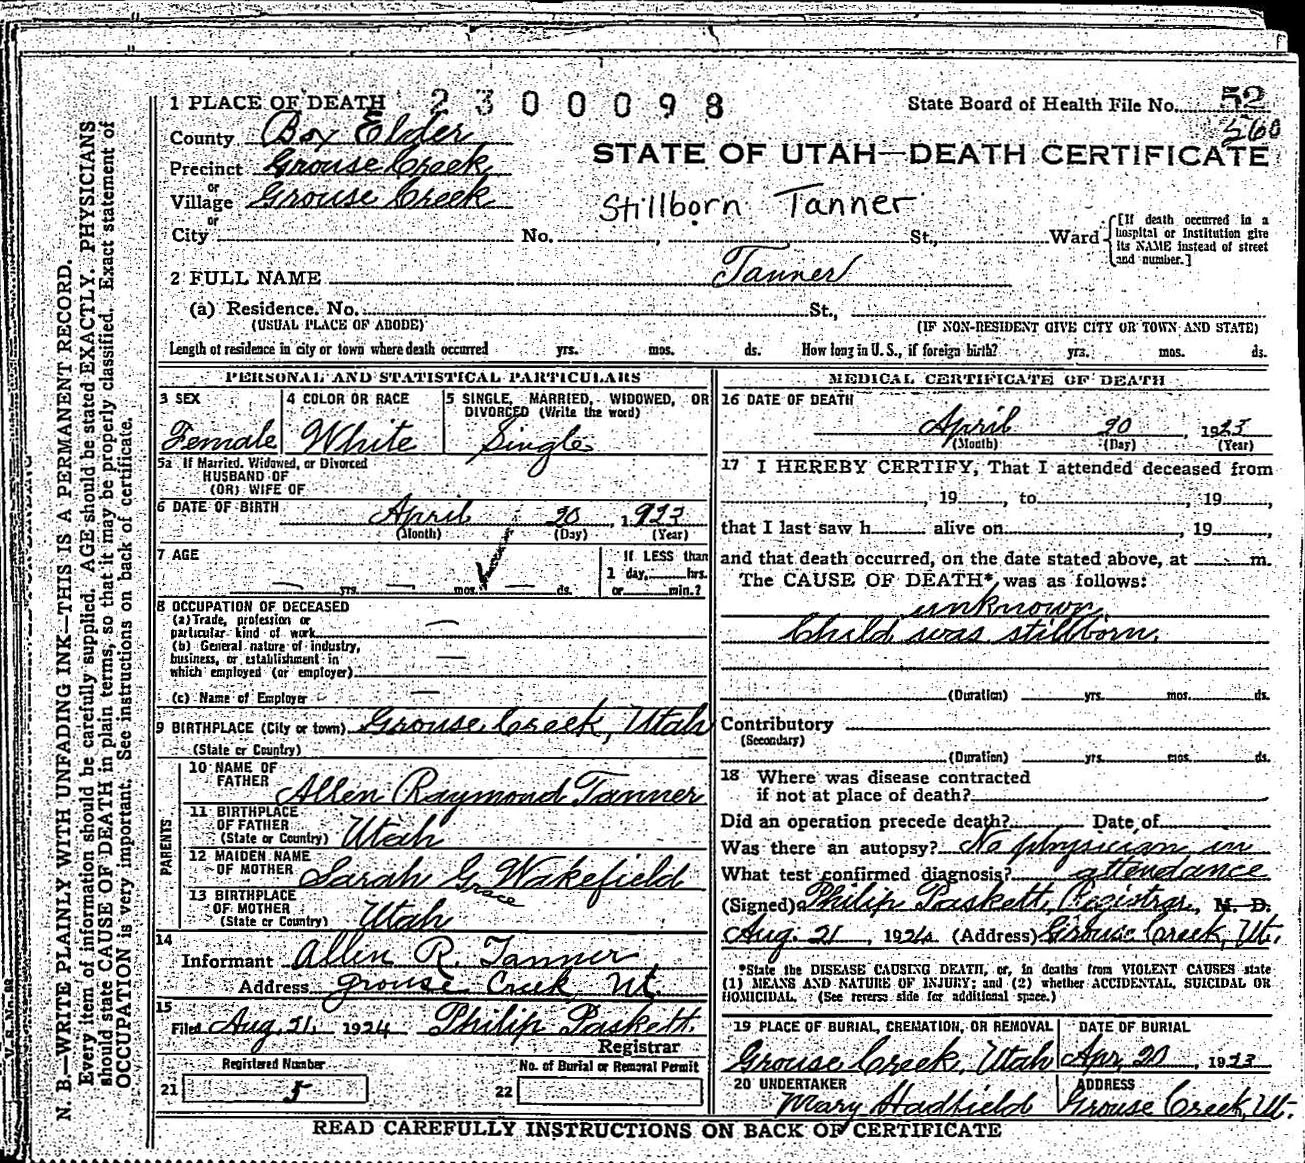 1 PLACE OF DEATH 2300098 State Board of Health File No. 52
County Box Elder 260
STATE OF UTAH—DEATH CERTIFICATE
Precinct Grouse Creek
or
Village Grouse Creek
or
Stillborn Tanner
City No. , St., Ward {[If death occurred in a hospital or Institution give its NAME instead of street and number.]
2 FULL NAME Tanner
(a) Residence. No. St.,
(USUAL PLACE OF ABODE) (IF NON-RESIDENT GIVE CITY OR TOWN AND STATE)
Length of residence in city or town where death occurred yrs. mos. ds. How long in U. S., if foreign birth? yrs. mos. ds.
PERSONAL AND STATISTICAL PARTICULARS
3 SEX 4 COLOR OR RACE 5 SINGLE, MARRIED, WIDOWED, OR
DIVORCED (Write the word)
Female White Single
5a If Married, Widowed, or Divorced
HUSBAND OF
(OR) WIFE OF
6 DATE OF BIRTH April 20, 1923
(Month) (Day) (Year)
7 AGE If LESS than
1 day, hrs.
— yrs. — mos. — ds. or min.?
8 OCCUPATION OF DECEASED
(a) Trade, profession or
particular kind of work —
(b) General nature of industry,
business, or establishment in
which employed (or employer) —
(c) Name of Employer —
9 BIRTHPLACE (City or town) Grouse Creek, Utah
(State or Country)
PARENTS
10 NAME OF
FATHER Allen Raymond Tanner
11 BIRTHPLACE
OF FATHER
(State or Country) Utah
12 MAIDEN NAME
OF MOTHER Sarah G. Wakefield
Grace
13 BIRTHPLACE
OF MOTHER
(State or Country) Utah
14
Informant Allen R. Tanner
Address Grouse Creek Ut.
15
Filed Aug. 21, 1924 Philip Paskett
Registrar
Registered Number No. of Burial or Removal Permit
21 5 22
MEDICAL CERTIFICATE OF DEATH
16 DATE OF DEATH
April 20, 1923
(Month) (Day) (Year)
17 I HEREBY CERTIFY, That I attended deceased from
, 19 , to , 19 ,
that I last saw h alive on , 19 ,
and that death occurred, on the date stated above, at m.
The CAUSE OF DEATH*, was as follows:
unknown
Child was stillborn.
(Duration) yrs. mos. ds.
Contributory
(Secondary)
(Duration) yrs. mos. ds.
18 Where was disease contracted
if not at place of death?
Did an operation precede death? Date of
Was there an autopsy? No physician in
What test confirmed diagnosis? attendance
(Signed) Philip Paskett, Registrar, M. D.
Aug. 21, 1924 (Address) Grouse Creek, Ut.
*State the DISEASE CAUSING DEATH, or, in deaths from VIOLENT CAUSES state
(1) MEANS AND NATURE OF INJURY; and (2) whether ACCIDENTAL, SUICIDAL OR
HOMICIDAL. (See reverse side for additional space.)
19 PLACE OF BURIAL, CREMATION, OR REMOVAL DATE OF BURIAL
Grouse Creek, Utah Apr. 20, 1923
20 UNDERTAKER ADDRESS
Mary Hadfield Grouse Creek, Ut.
READ CAREFULLY INSTRUCTIONS ON BACK OF CERTIFICATE
N. B.—WRITE PLAINLY WITH UNFADING INK—THIS IS A PERMANENT RECORD.
Every item of information should be carefully supplied. AGE should be stated EXACTLY. PHYSICIANS
should state CAUSE OF DEATH in plain terms, so that it may be properly classified. Exact statement of
OCCUPATION is very important. See instructions on back of certificate.